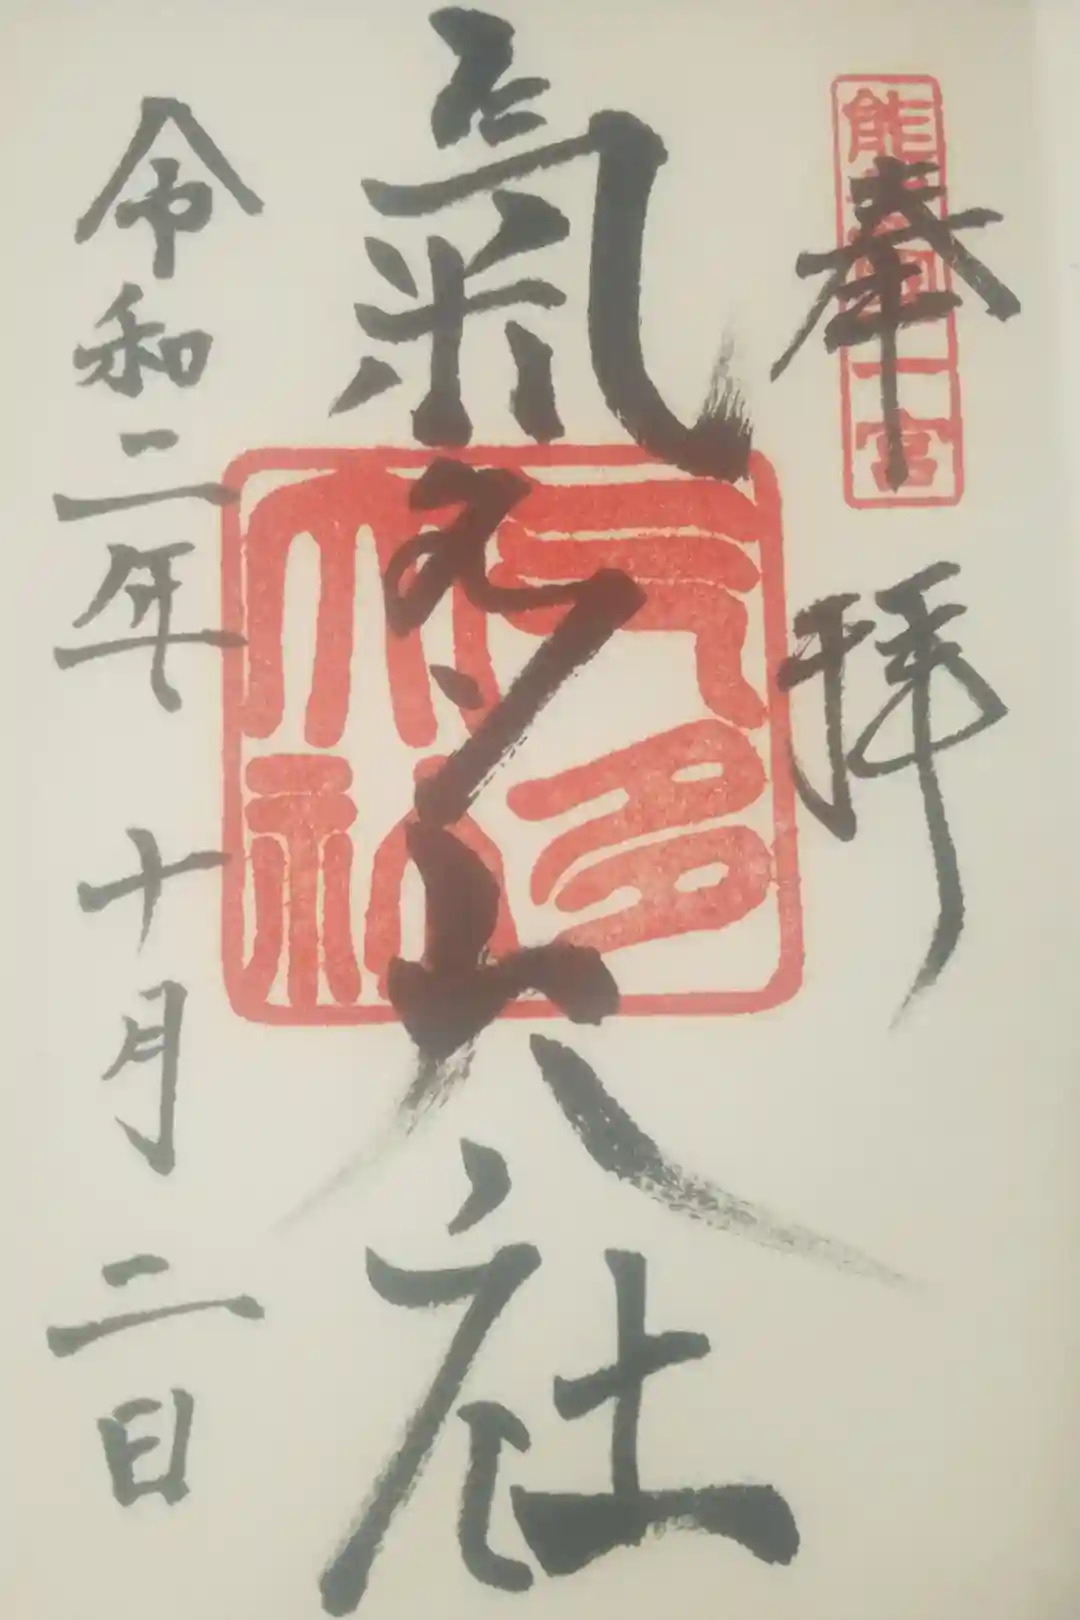 奉拝
能登國一宮
氣多大社
气多大社
令和二年十月二日